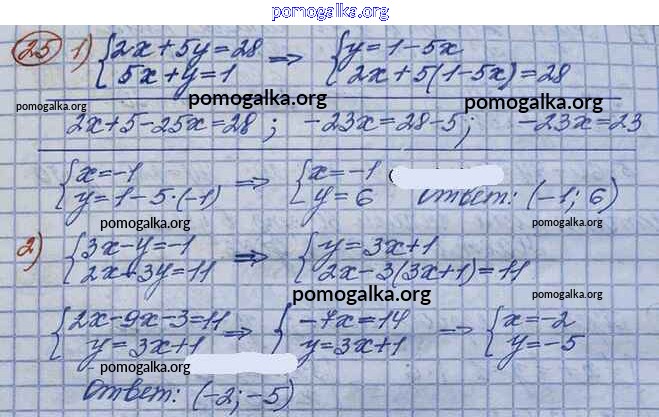 pomogalka.org
25 1) {2x+5y=28 => {y=1-5x
{5x+y=1 {2x+5(1-5x)=28
pomogalka.org pomogalka.org pomogalka.org
2x+5-25x=28 ; -23x=28-5; -23x=23
{x=-1 => {x=-1
{y=1-5·(-1) {y=6 Ответ: (-1; 6)
pomogalka.org pomogalka.org
2) {3x-y=-1 => {y=3x+1
{2x-3y=11 {2x-3(3x+1)=11
pomogalka.org pomogalka.org
{2x-9x-3=11 => {-7x=14 => {x=-2
{y=3x+1 {y=3x+1 {y=-5
pomogalka.org pomogalka.org
Ответ: (-2; -5)